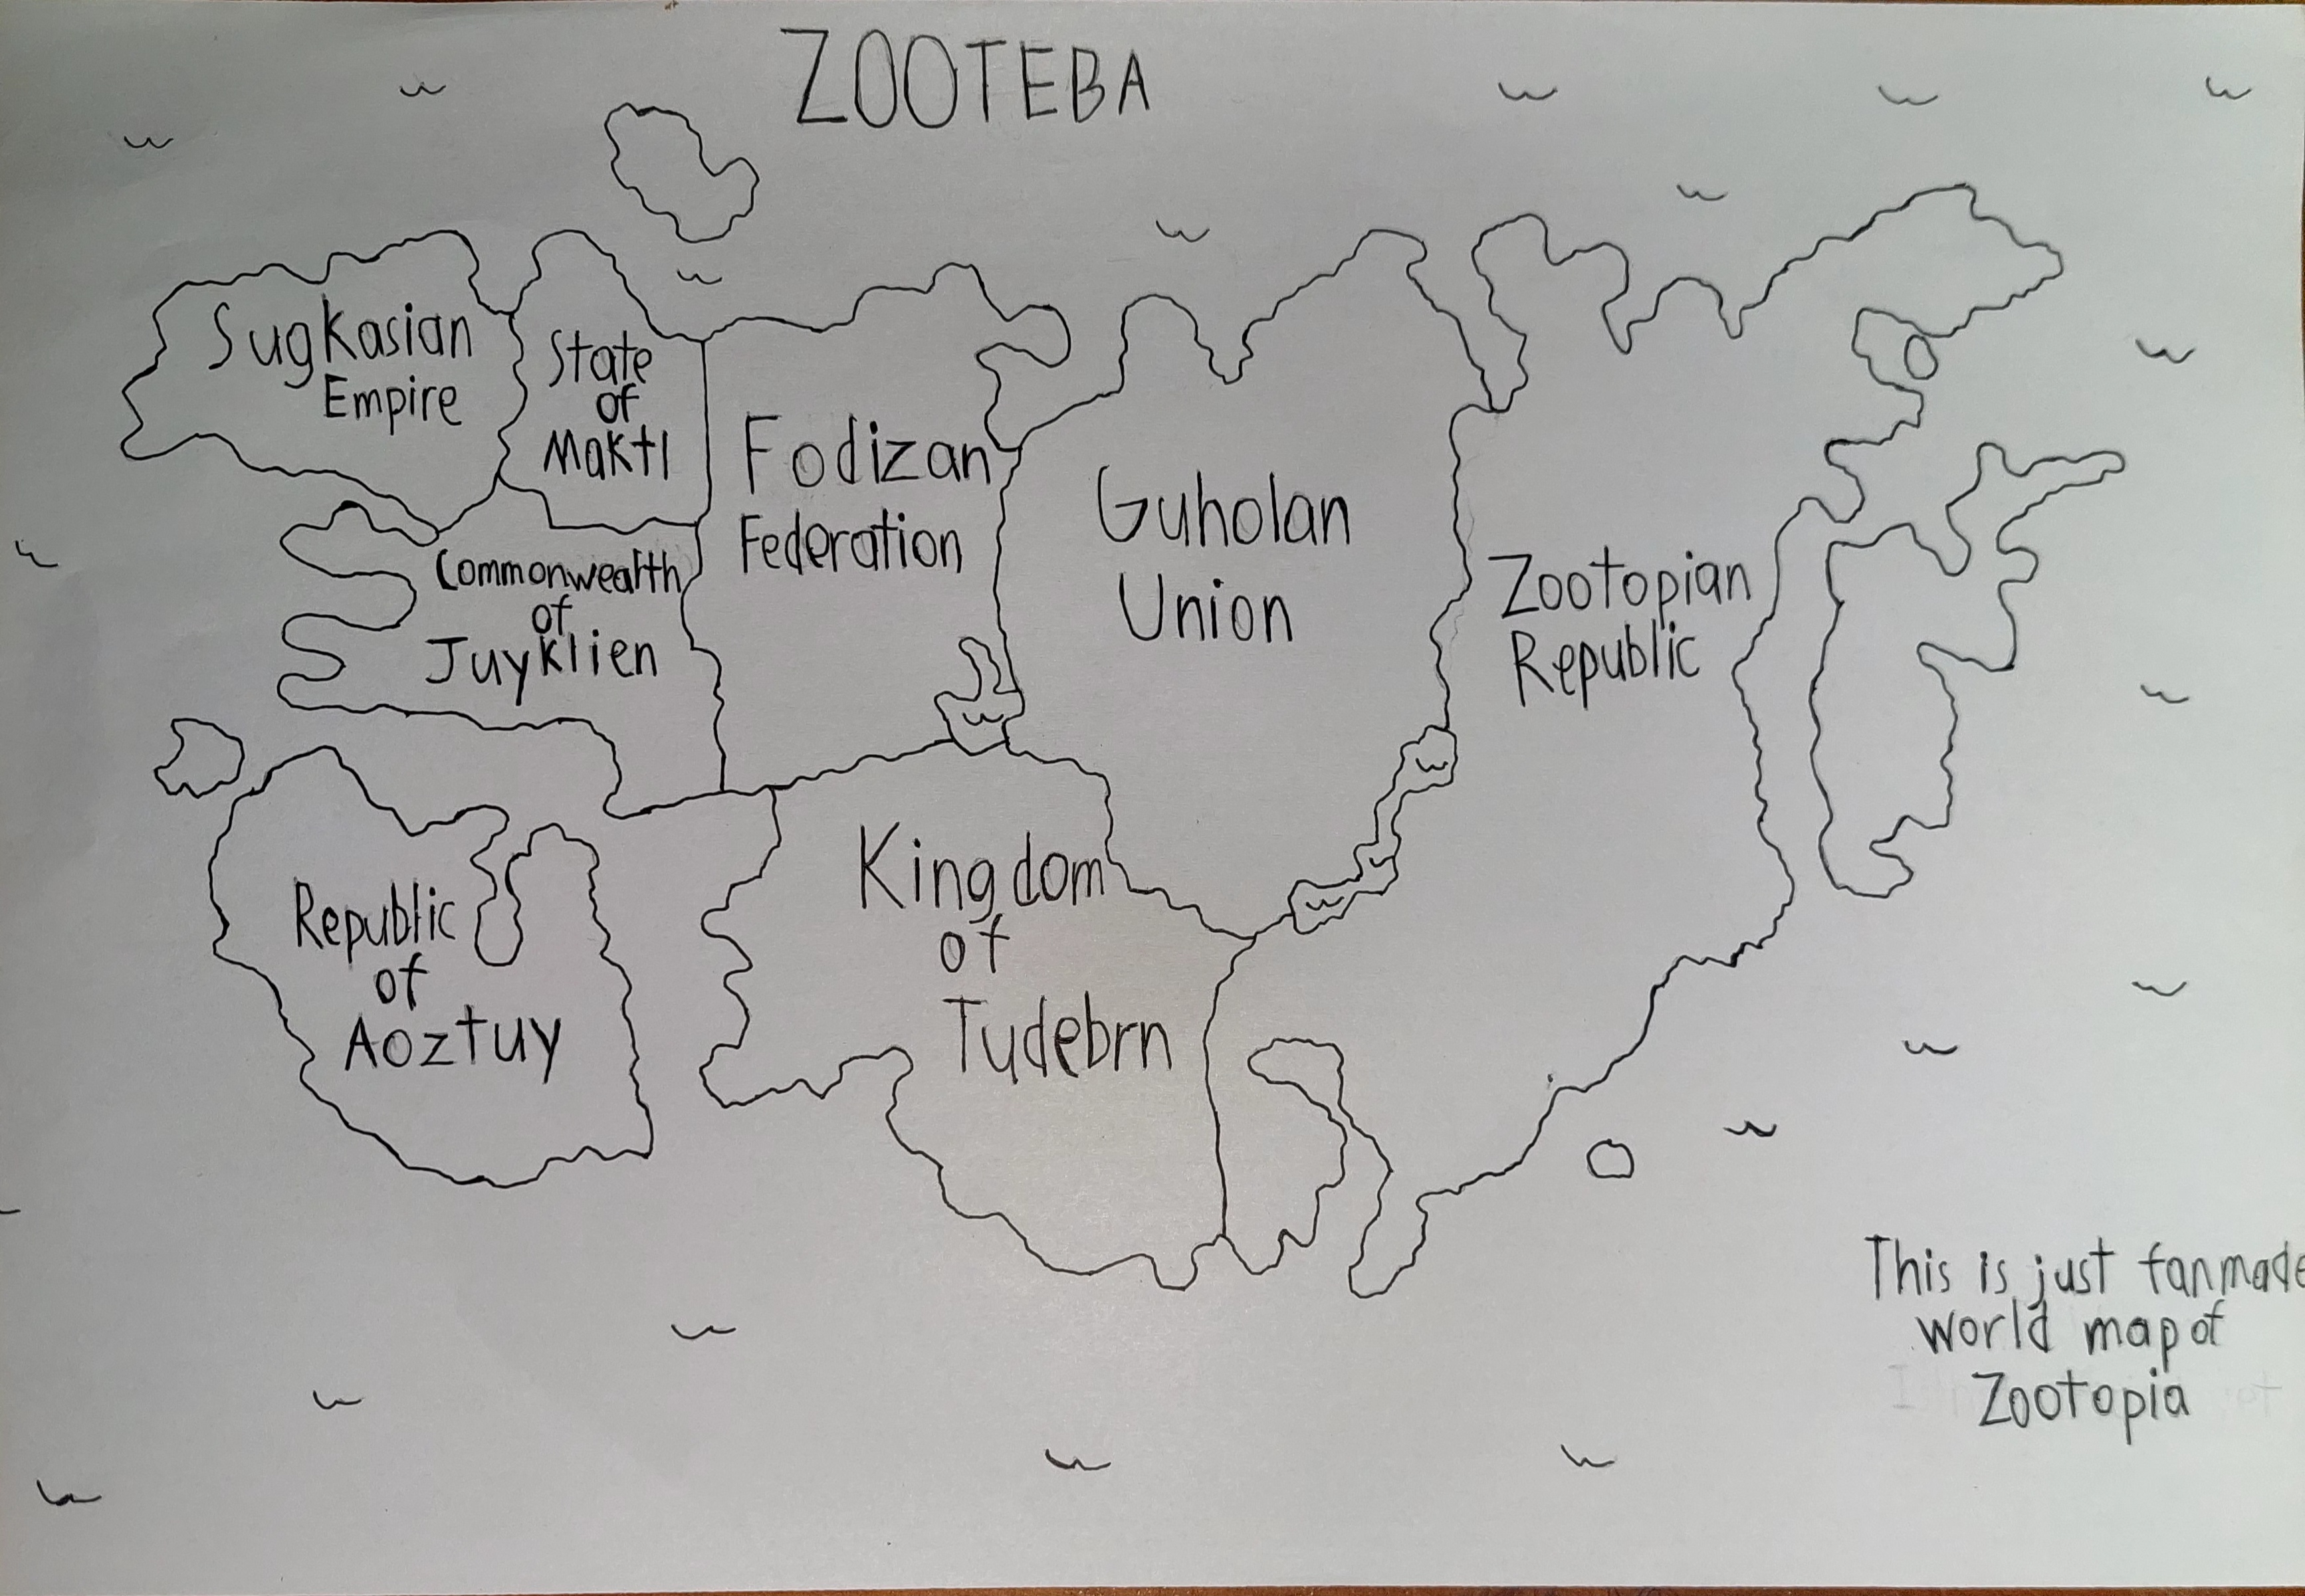 ZOOTEBA
Sugkasian
Empire
State
of
Makti
Fodizan
Federation
Guholan
Union
Zootopian
Republic
Commonwealth
of
Juyklien
Republic
of
Aoztuy
Kingdom
of
Tudebrn
This is just fanmade
world map of
Zootopia